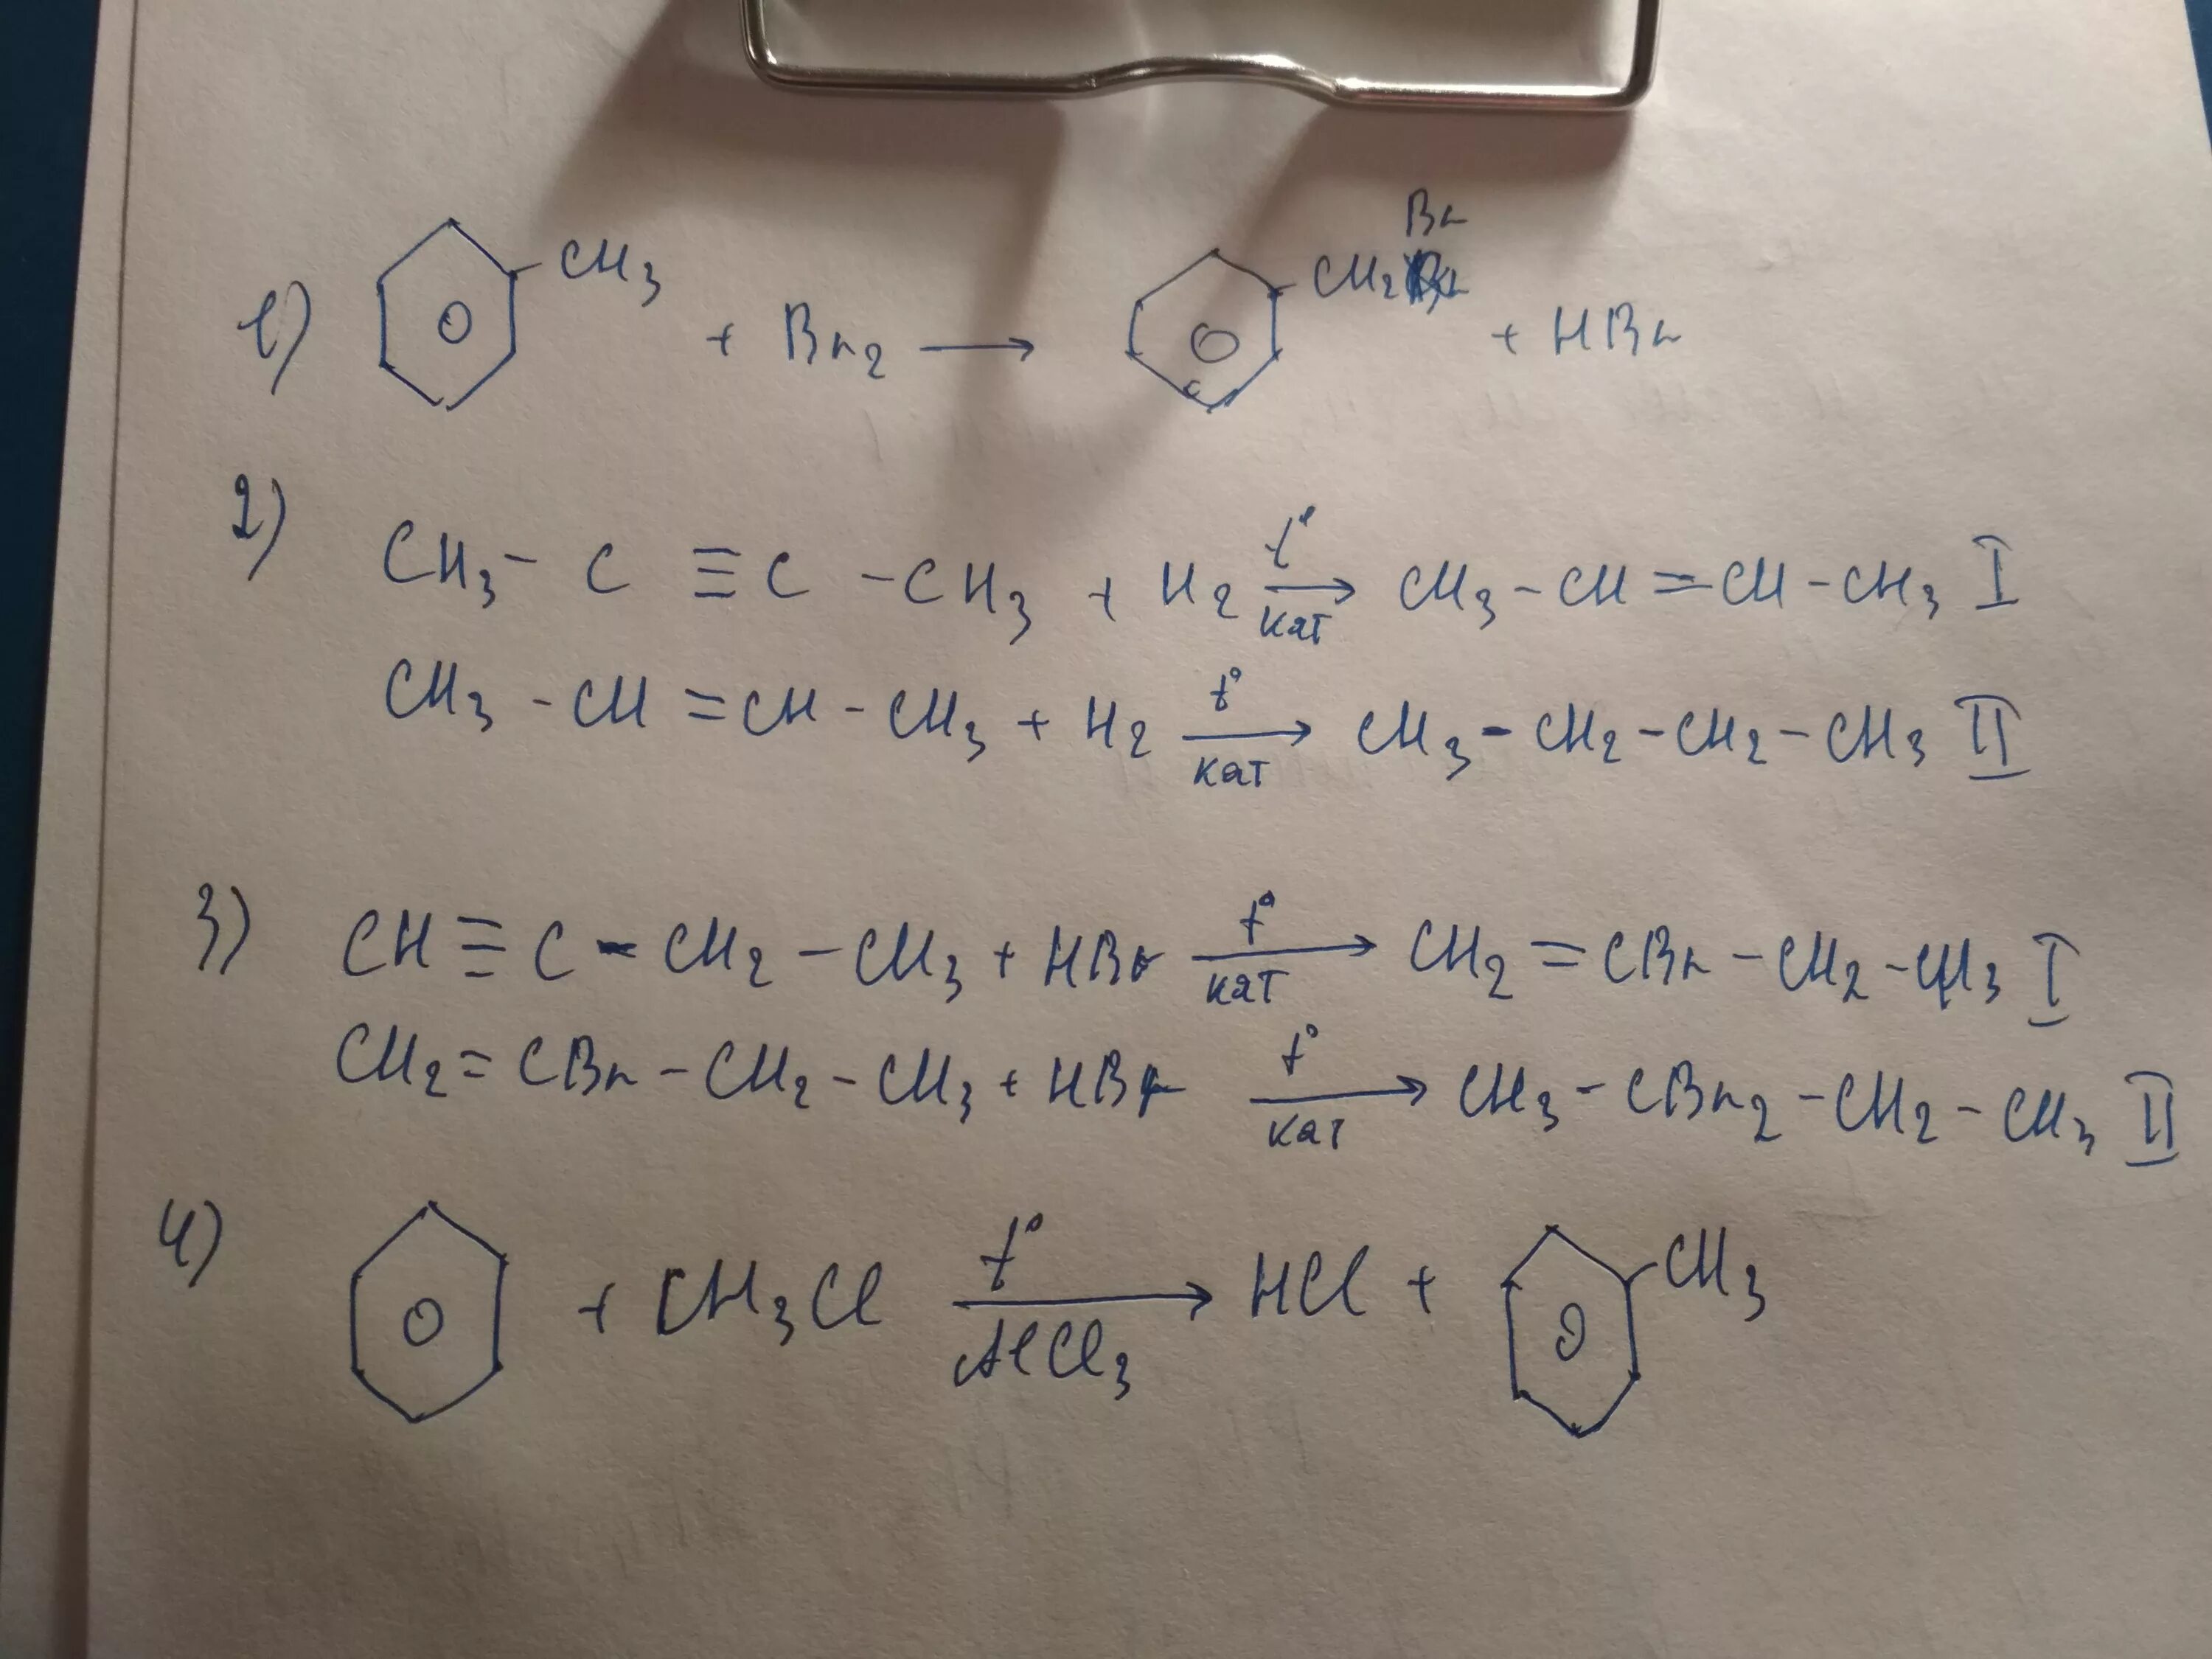 1) CH3 + Br2 → CH2Br + HBr
2) CH3 - C ≡ C - CH3 + H2 t° → кат CH3 - CH = CH - CH3 I
CH3 - CH = CH - CH3 + H2 t° → кат CH3 - CH2 - CH2 - CH3 II
3) CH ≡ C - CH2 - CH3 + HBr t° → кат CH2 = CBr - CH2 - CH3 I
CH2 = CBr - CH2 - CH3 + HBr t° → кат CH3 - CBr2 - CH2 - CH3 II
4) + CH3Cl t° → AlCl3 HCl + CH3